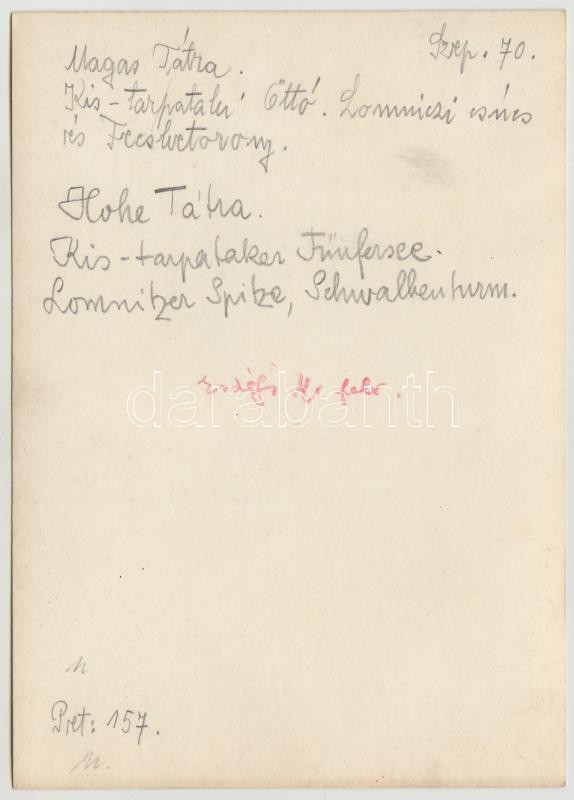 Magas Tátra.
Szep. 70.
Kis-tarpataki Öttó. Lomniczi csúcs
és Fecsketorony.
Hohe Tátra.
Kis-tarpataker Fünfersee.
Lomnitzer Spitze, Schwalbenturm.
Erdélyi M. felv.
darabanth
Pret: 157.